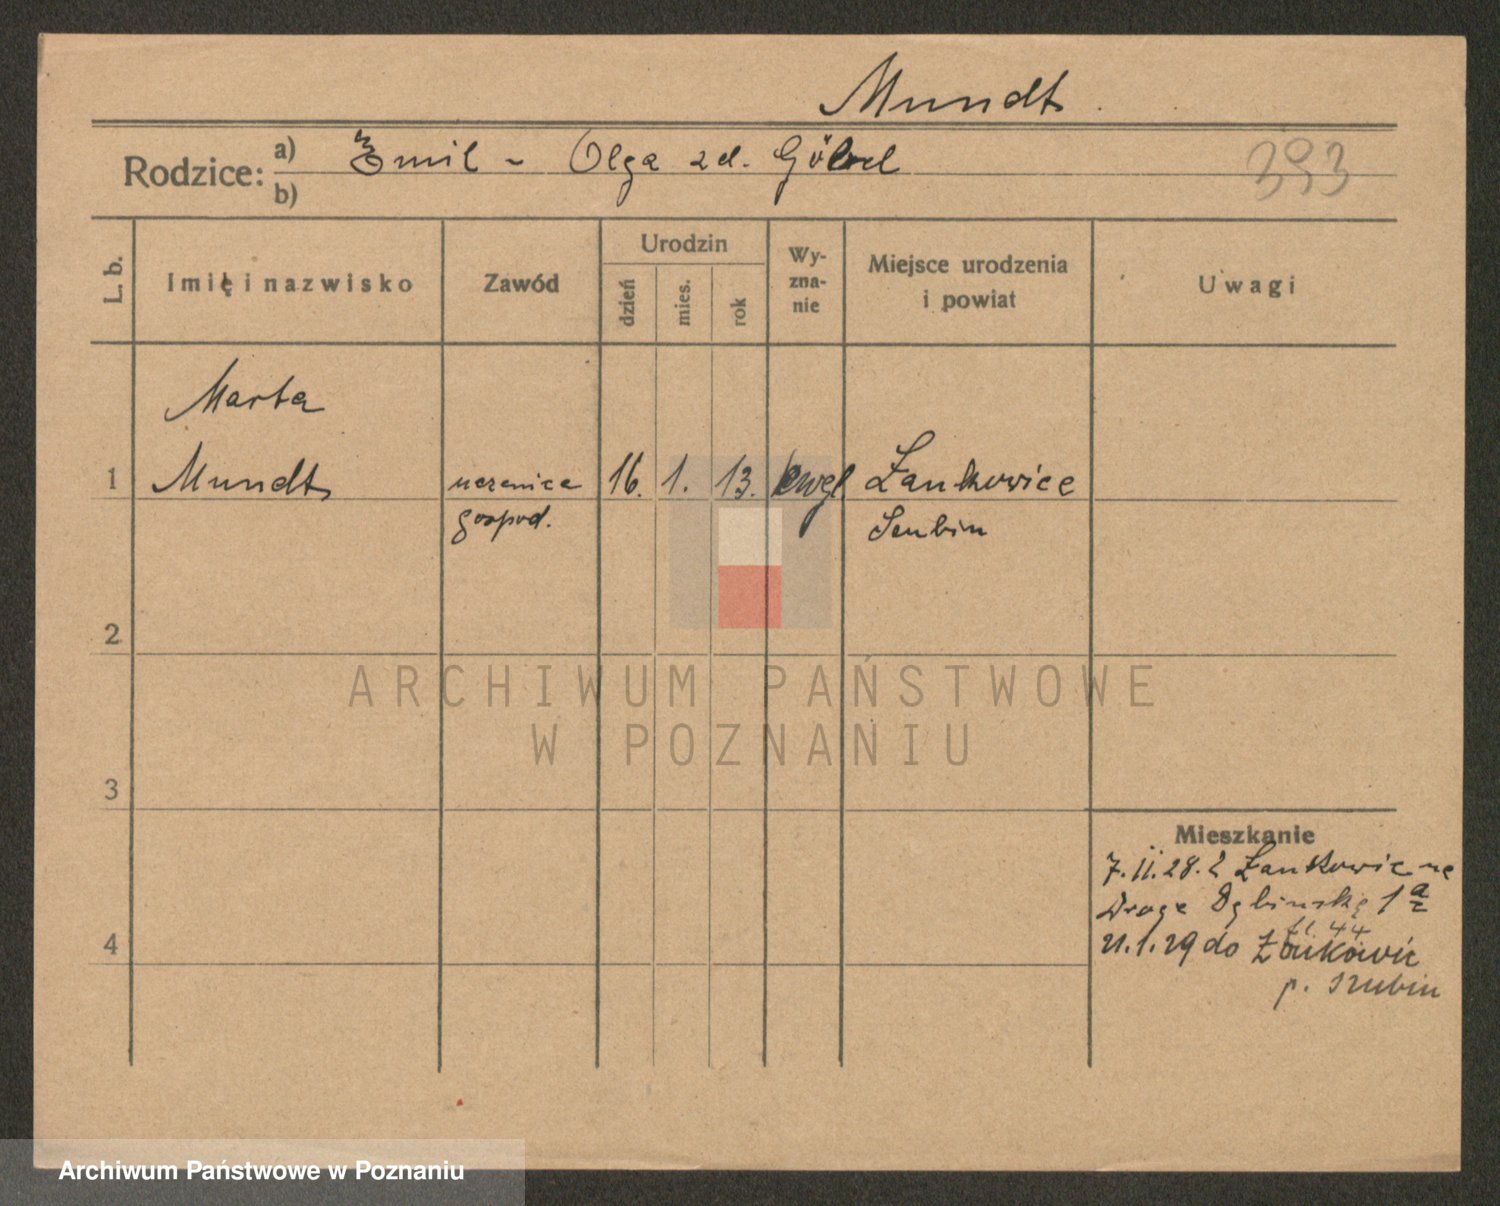 Mundt.
Rodzice: a) Emil - Olga zd. Göbel
b)
393
L. b.
Imię i nazwisko
Zawód
Urodzin
dzień
mies.
rok
Wy-
zna-
nie
Miejsce urodzenia
i powiat
Uwagi
Marta
1 Mundt uczenica 16. 1. 13. ewgl Żankowice
gospod. Szubin
2
ARCHIWUM PAŃSTWOWE
W POZNANIU
3
Mieszkanie
7.II.28. z Żankowic na
Droga Dębińska 1a
44
4
21.1.29 do Żankowic
p. Szubin
Archiwum Państwowe w Poznaniu